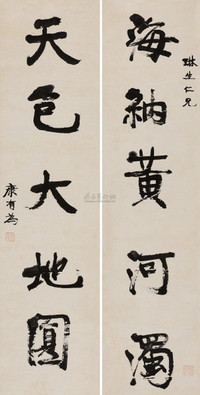 琳生仁兄
海納黃河濁
天包大地圓
康有為